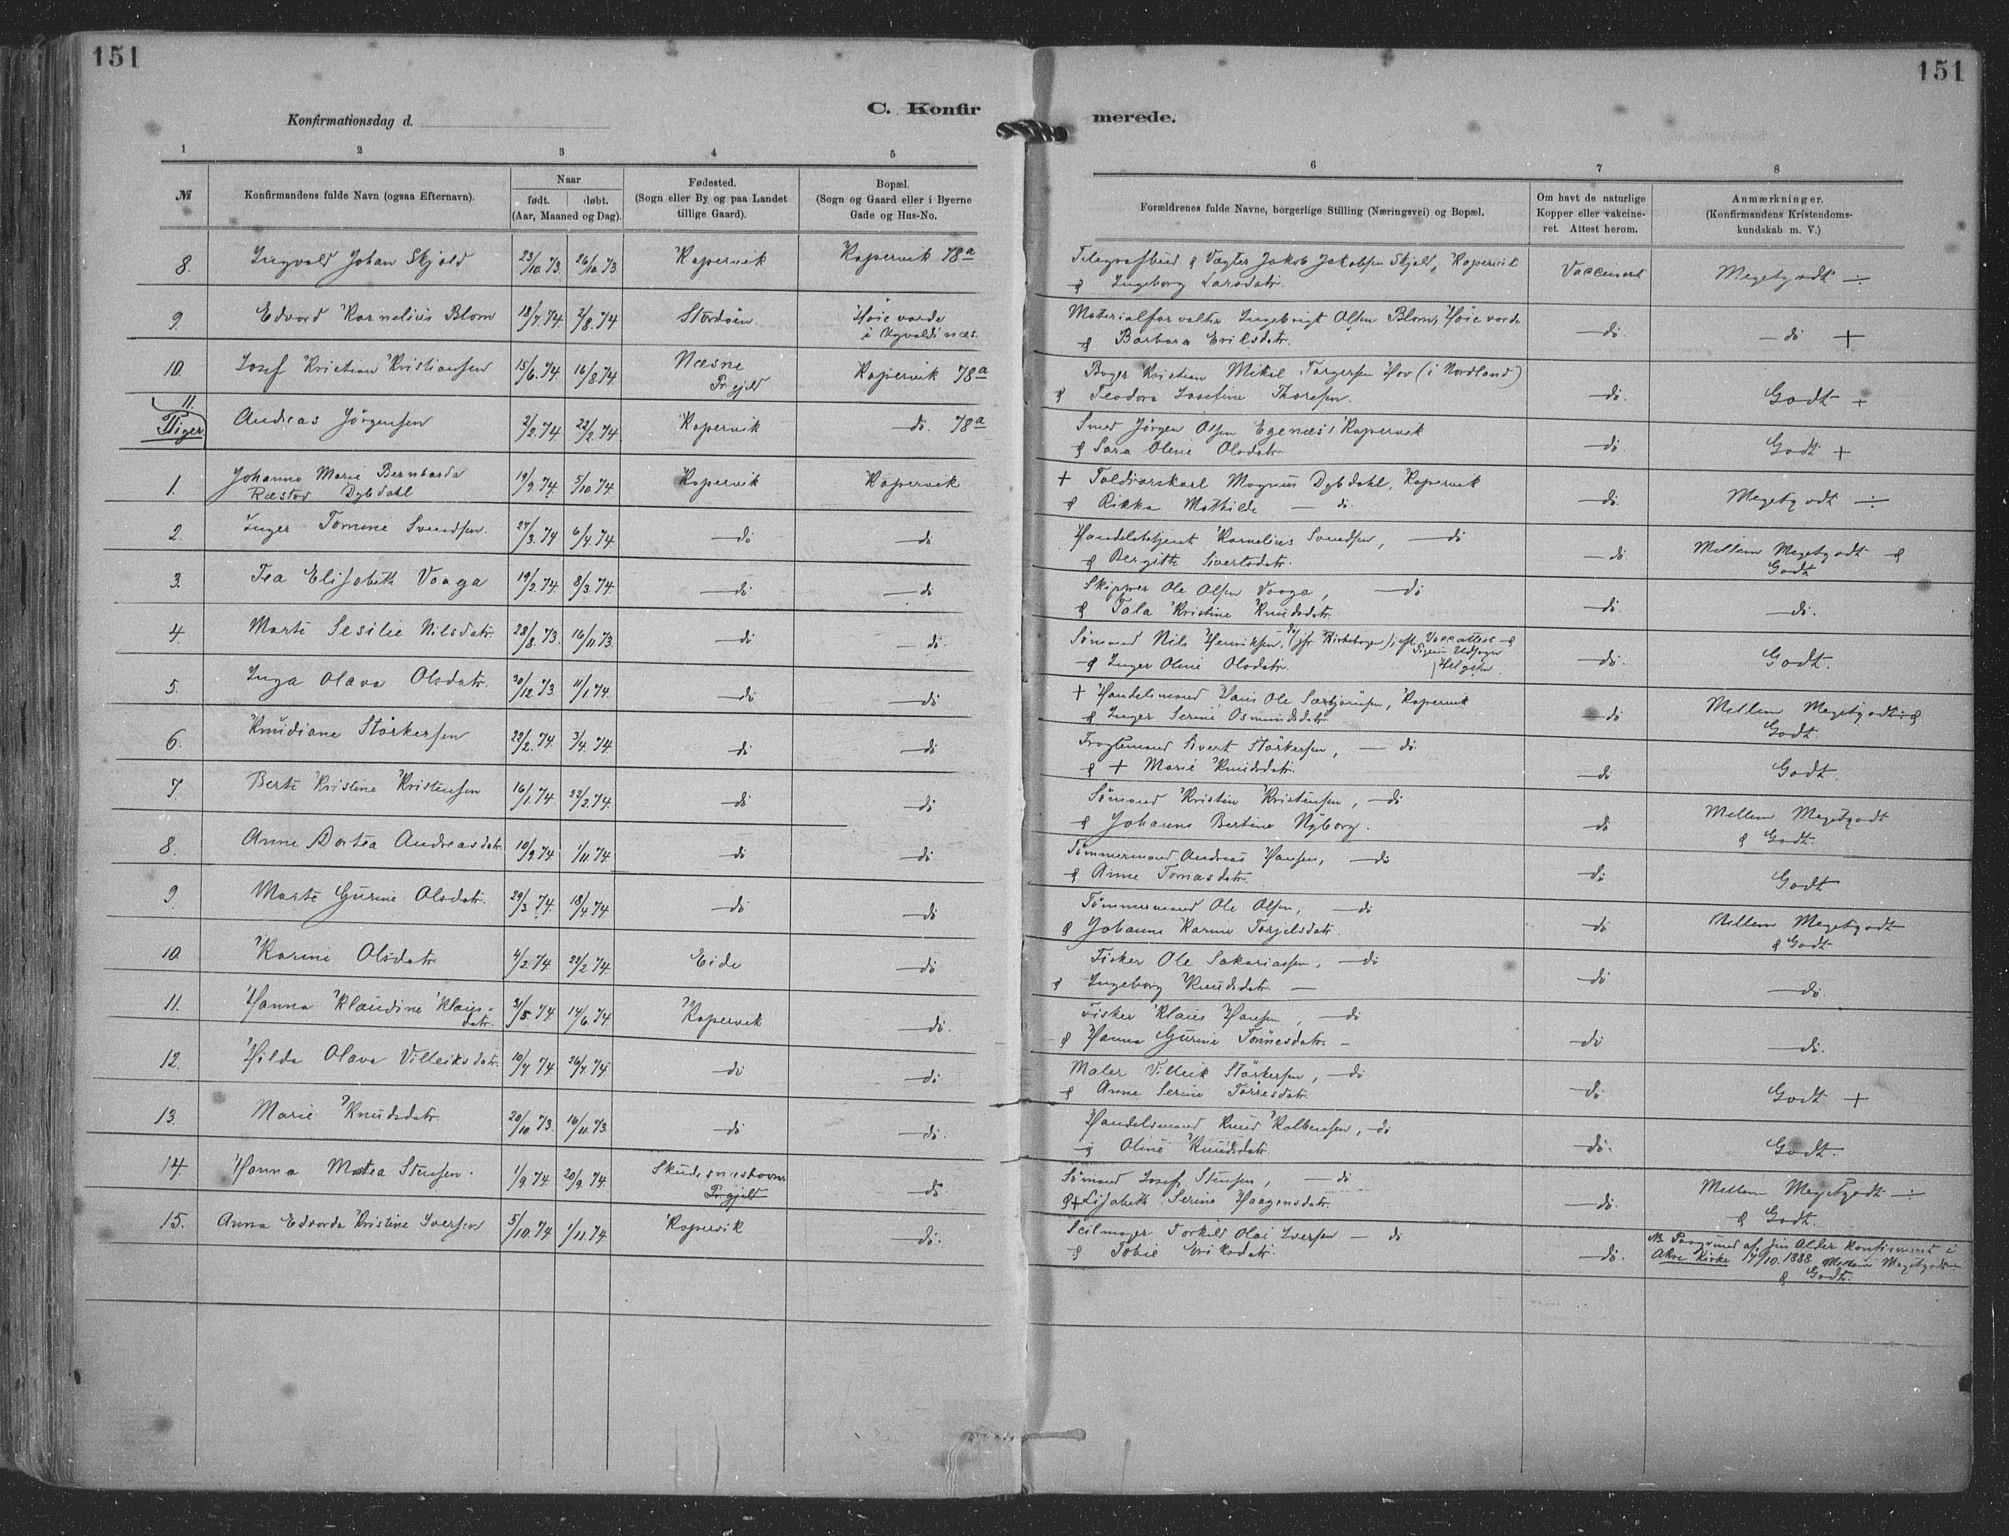 151
151
C. Konfirmerede.
Konfirmationsdag d.
1 2 3 4 5 6 7 8
№
Konfirmandens fulde Navn (ogsaa Efternavn).
Naar
født. døbt.
(Aar, Maaned og Dag).
Fødested.
(Sogn eller By og paa Landet
tillige Gaard).
Bopæl.
(Sogn og Gaard eller i Byerne
Gade og Hus-No.
Forældrenes fulde Navne, borgerlige Stilling (Næringsvei) og Bopæl.
Om havt de naturlige
Kopper eller vakcine-
ret. Attest herom.
Anmærkninger.
(Konfirmandens Kristendoms-
kundskab m. V.)
8. Ingvald Johan Skjold 23/10.73. 26/10.73. Kopervik Kopervik 78a Telegrafbud & Vægter Jakob Jakobsen Skjold, Kopervik Vaccineret Megetgodt ÷
& Ingeborg Larsdatr.
9. Edvard Kornelius Blom 18/7.74. 2/8.74 Stordøen. Høievarde Materialforvalter Ingebrigt Olsen Blom, Høievarde do do +
i Agvaldsnæs. & Barbara Eriksdatr.
10. Josef Kristian Kristiansen 15/6.74. 16/8.74. Næsne Kopervik 78a Kristian Mikal Torgersen Hov (i Nordland) do. Godt +
Pr.gjeld & Teodora Josefine Thoresen.
11. Andreas Jørgensen 2/2.74 22/2.74 Kopervik do. 78a Smed Jørgen Olsen Egenæs, Kopervik do Godt +
& Sara Oline Olsdatr.
Piger
1. Johanna Marie Bernharda 19/9.74. 5/10.74 Kopervik Kopervik + Toldoarskarl Magnus Dybdahl, Kopervik do. Megetgodt ÷
Ræstad Dybdahl & Rikka Mathilde do.
2. Inger Tomine Svendsen. 27/3.74 6/4.74. do do Handelsbetjent Kornelius Svendsen, do do. Mellem Megetgodt &
& Bergitte Sivertsdatr. Godt
3. Tea Elisabeth Vaaga 19/2.74. 8/3.74. do do Skipper Ole Olsen Vaaga, do do. do.
& Tala Kristine Knudsdatr.
4. Marte Sesilie Nilsdatr. 28/8.73. 16/11.73. do do. Sømand Nils Henriksen, do (jfr. Kirkebogen), efter Vaccattest & do. Godt.
& Inger Oline Olsdatr. Pigens Udsagn Helgesen.
5. Inga Olava Olsdatr. 30/12.73. 11/1.74. do do + Handelsmand Hans Ole Sæbjørnsen, Kopervik do Mellem Megetgodt &
& Inger Serine Osmundsdatr. Godt.
6. Knudiane Størkersen 22/2.74. 3/4.74. do do Fragtemand Sivert Størkersen, do do Godt.
& + Marie Knudsdatr.
7. Berte Kristine Kristensen 16/1.74. 22/2.74. do do Sømand Kristen Kristensen, do do Mellem Megetgodt
& Johanne Bertine Nyborg. & Godt.
8. Anne Dortea Andreasdatr. 10/9.74 1/11.74 do do Tømmermand Andreas Hansen, do do Godt
& Anne Tomasdatr.
9. Marte Gurine Olsdatr. 29/3.74. 18/4.74 do do Tømmermand Ole Olsen, do do Mellem Megetgodt
& Johanne Karine Torjelsdatr. & Godt.
10. Karine Olsdatr. 4/2.74 22/2.74 Eide do Fisker Ole Sakariassen, do do do.
& Ingeborg Knudsdatr. —
11. Hanna Klaudine Klaus= 31/5.74 14/6.74. Kopervik do. Fisker Klaus Hansen, do do do.
datr. & Hanna Gurine Tønnesdatr. —
12. Hilda Olava Villeiksdatr. 10/7.74 26/7.74 do do Maler Villeik Størkersen, do do. Godt +
& Anne Serine Tørresdatr.
13. Marie Knudsdatr. 20/10.73. 16/11.73. do do. Handelsmand Knud Kolbensen, do do. Godt.
& Oline Knudsdatr.
14. Hanna Matea Stensen. 1/9.74 20/9.74 Skudesneshavn do Sømand Josef Stensen, do do. Mellem Megetgodt ÷
Pr.gjeld & + Lisabeth Serine Haagensdatr. & Godt.
15. Anna Edvarda Kristine Iversen 5/10.74 1/11.74 Kopervik do. Seilmager Torkild Olai Iversen — do do. NB. Paagrund af sin Alder konfirmeret i
& Tobie Eriksdatr. Akre Kirke 17/10.1888. Mellem Megetgodt
& Godt.